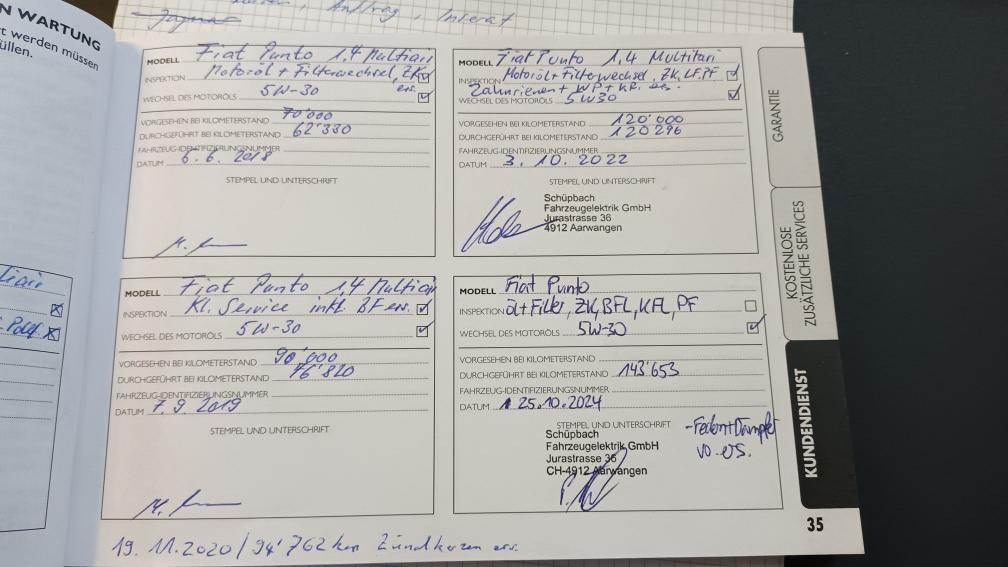 Antrag, Inserat
Jaguar
N WARTUNG
t werden müssen
üllen.
MODELL Fiat Punto 1,4 Multiair
INSPEKTION Motoröl + Filterwechsel, ZK
ers.
WECHSEL DES MOTORÖLS 5W-30
VORGESEHEN BEI KILOMETERSTAND 70'000
DURCHGEFÜHRT BEI KILOMETERSTAND 62'330
FAHRZEUG-IDENTIFIZIERUNGSNUMMER
DATUM 6.6.2018
STEMPEL UND UNTERSCHRIFT
MODELL Fiat Punto 1,4 Multiair
INSPEKTION Motoröl + Filterwechsel, ZK, LF, PF
Zahnriemen + WP + KR. ers.
WECHSEL DES MOTORÖLS 5W30
VORGESEHEN BEI KILOMETERSTAND 120'000
DURCHGEFÜHRT BEI KILOMETERSTAND 120296
FAHRZEUG-IDENTIFIZIERUNGSNUMMER
DATUM 3.10.2022
STEMPEL UND UNTERSCHRIFT
Schüpbach
Fahrzeugelektrik GmbH
Jurastrasse 36
4912 Aarwangen
MODELL Fiat Punto 1,4 Multiair
INSPEKTION Kl. Service inkl. BF ers.
WECHSEL DES MOTORÖLS 5W-30
VORGESEHEN BEI KILOMETERSTAND 90'000
DURCHGEFÜHRT BEI KILOMETERSTAND 76'820
FAHRZEUG-IDENTIFIZIERUNGSNUMMER
DATUM 7.9.2019
STEMPEL UND UNTERSCHRIFT
MODELL Fiat Punto
INSPEKTION Öl+Filter, ZK, BFL, KFL, PF
WECHSEL DES MOTORÖLS 5W-30
VORGESEHEN BEI KILOMETERSTAND
DURCHGEFÜHRT BEI KILOMETERSTAND 143'653
FAHRZEUG-IDENTIFIZIERUNGSNUMMER
DATUM 25.10.2024
STEMPEL UND UNTERSCHRIFT
Schüpbach
Fahrzeugelektrik GmbH
Jurastrasse 36
CH-4912 Aarwangen
- Federn+Dämpfer
vo. ers.
19.11.2020/94'762 km Zündkerzen ers.
GARANTIE
KOSTENLOSE
ZUSÄTZLICHE SERVICES
KUNDENDIENST
35